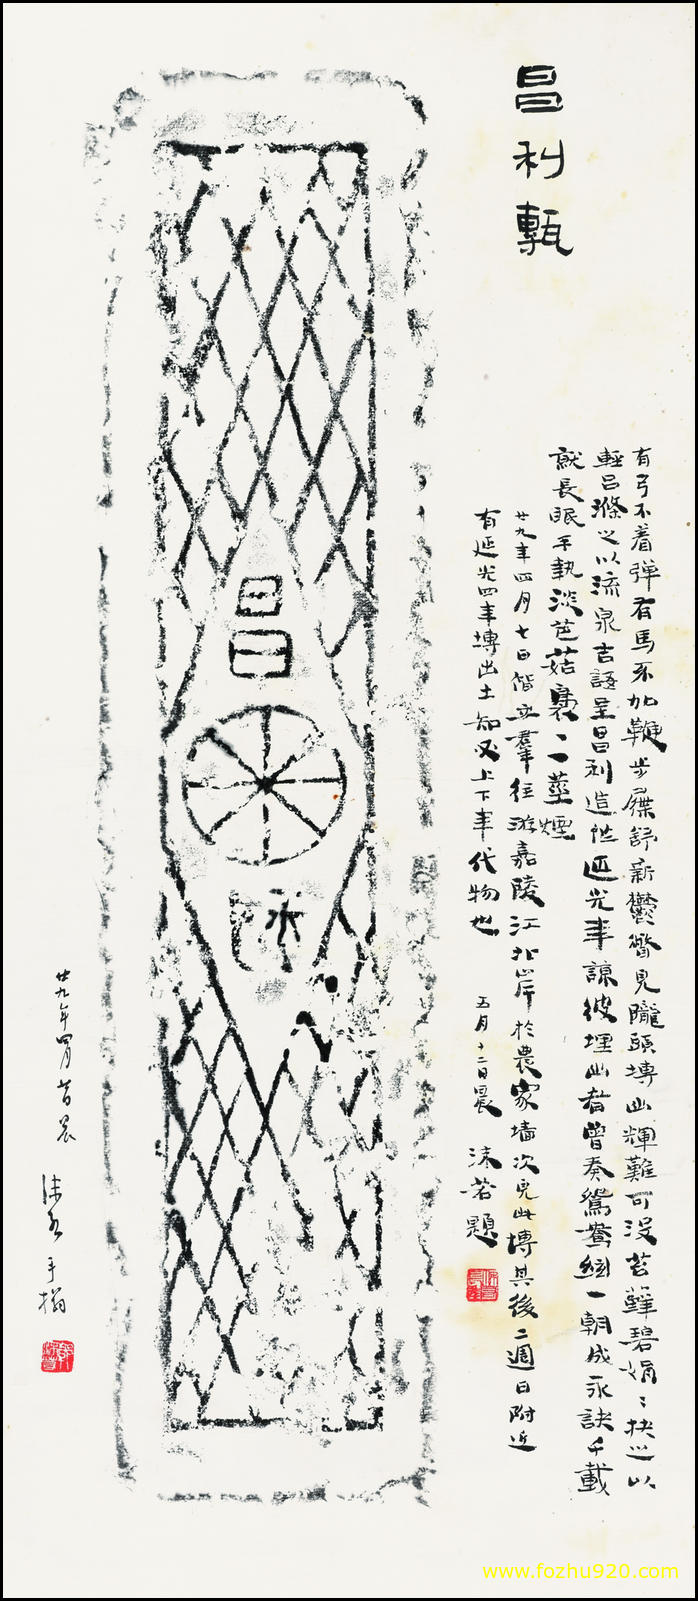 昌利甎
有弓不着彈有馬不加鞭步屧舒新鬱瞥見隴頭塼幽輝難可没苔蘚碧娟〻抉之以
輕呂滌之以流泉吉語呈昌利造世延光年諒彼埋幽者曾奏鴛鴦絃一朝成永訣千載
就長眠手執淡芭菰裊裊一莖煙
廿九年四月七日偕立群往游嘉陵江北岸於農家墻次見此塼其後二週日附近
有延光四年塼出土知必上下年代物也
五月十二日晨 沫若題
昌
利
廿九年四月
晨 沫若手搨
www.fozhu920.com